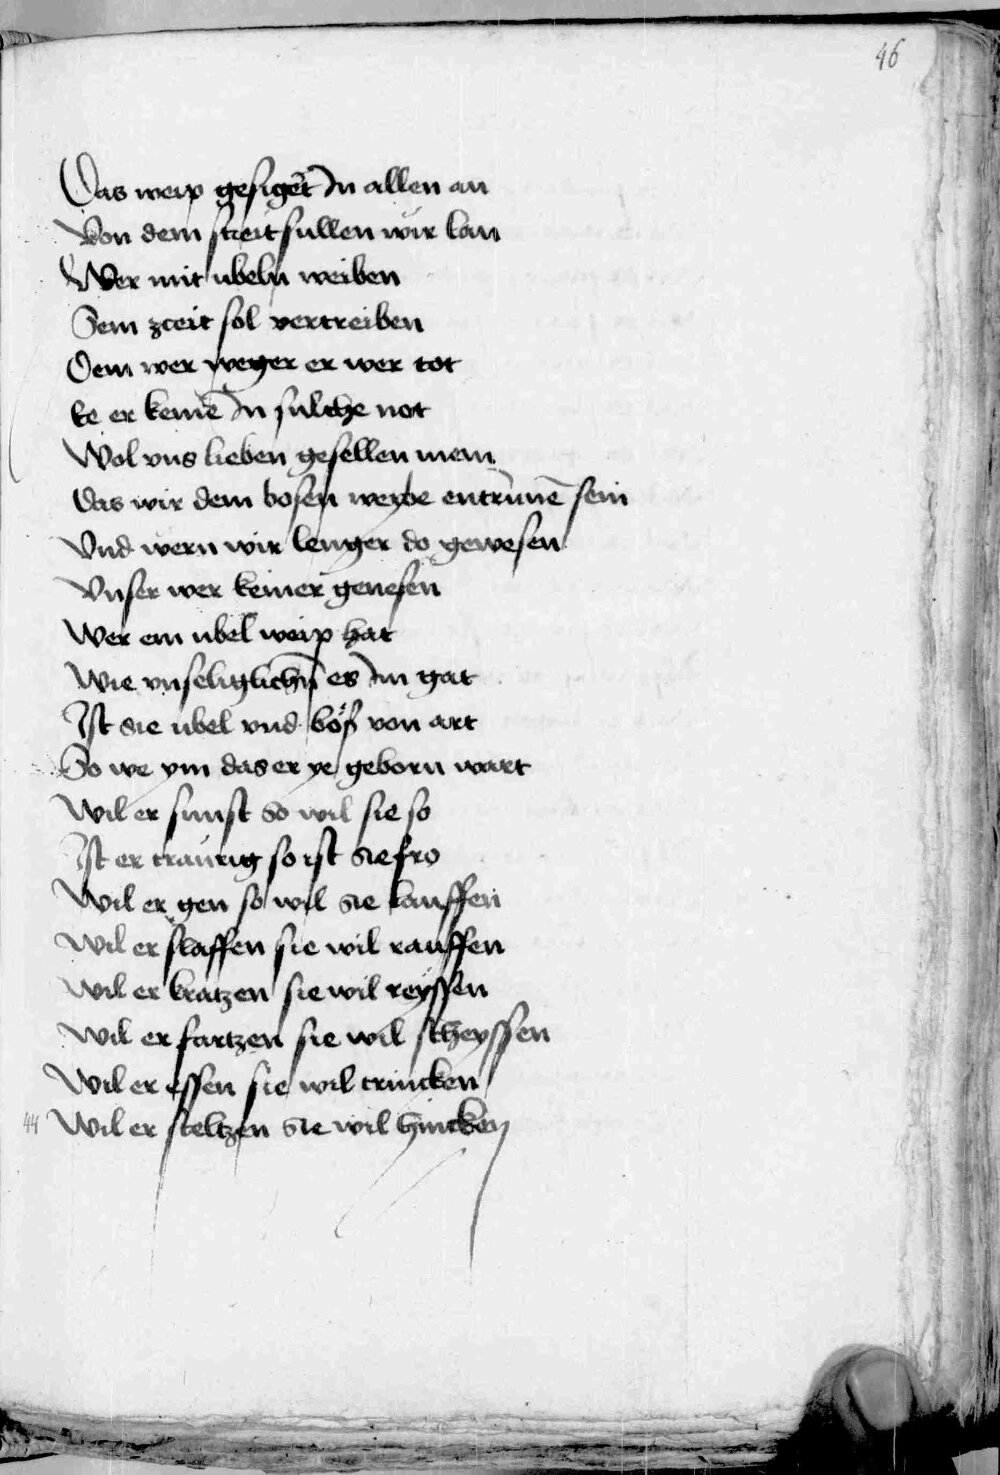 46
Das weip gesiget In allen an
Von dem streit sullen wir lan
Wer mit ubeln weiben
Sein zceit sol vertreiben
Dem wer weger er wer tot
Ee er keme In sulche not
Wol vns lieben gesellen mein
Das wir dem bosen weybe entrunnē sein
Vnd wern wir lenger do gewesen
Vnser wer keiner genesen
Wer ein ubel weip hat
Wie vnseliglichn̄ es Im gat
Ist sie ubel vnd böß von art
So we ym das er ye geborn wart
Wil er sunst so wil sie so
Ist er traurig so ist sie fro
Wil er gen so wil sie lauffen
Wil er slaffen sie wil rauffen
Wil er kratzen sie wil reyssen
Wil er fartzen sie wil scheyssen
Wil er essen sie wil trincken
44 Wil er steltzen sie wil hincken